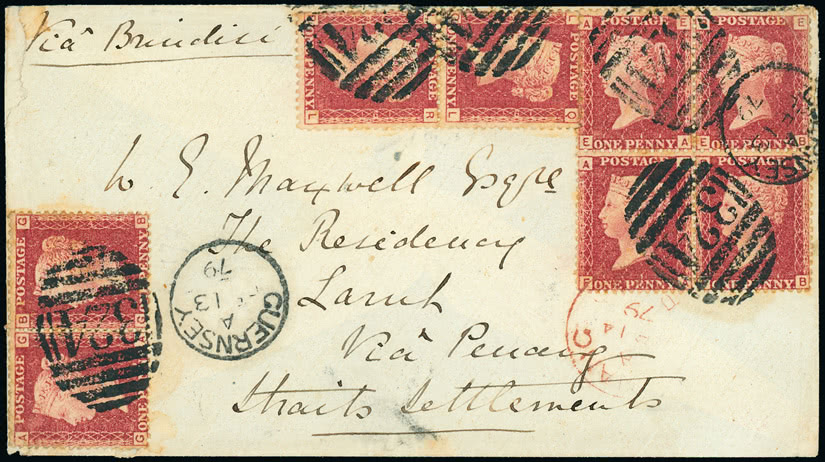 Viâ Brindisi
W E. Maxwell Esqre
The Residency
Larut
Viâ Penang
Straits Settlements
GUERNSEY
A
13
79
324
324
POSTAGE
ONE PENNY
POSTAGE
ONE PENNY
POSTAGE
ONE PENNY
POSTAGE
ONE PENNY
POSTAGE
POSTAGE
POSTAGE
ONE PENNY
POSTAGE
ONE PENNY
14
79